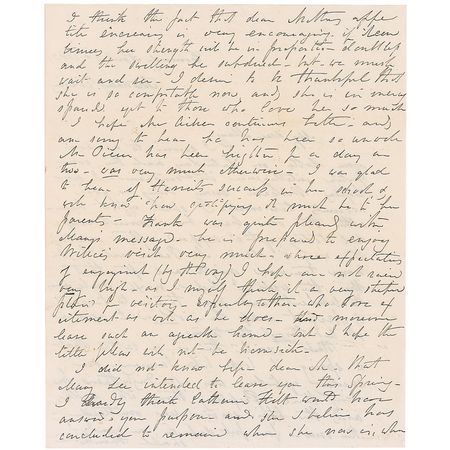 I think the fact that dear Mothers appe
tite increasing is very encouraging, if it con
tinues her strength will be in proportion doubtless
and the swelling be subdued - but we must
wait and see - I desire to be thankful that
she is so comfortable now, and she is in mercy
spared yet to those who love her so much
I hope Mr continues better - and
am sorry to hear he has been so unwell
Mr has been brighter for a day or
two - was very much otherwise - I was glad
to hear of Harriets success in her school &
well know how gratifying it must be to her
parents - Frank was quite pleased with
Mary's message - he is prepared to enjoy
Willie's visit very much - whose expectations
of enjoyment (by the way) I hope are not raised
very high - as I myself think it a very
place to visitors - especially to those who love ex
citement as well as he does - and moreover
leave such an agreeable home - but I hope the
little fellow will not be homesick.
I did not know hope dear Sh that
Mary Lee intended to leave you this Spring -
I hardly think Catharine would have
answered your purpose and she I believe has
concluded to remain where she now is, where